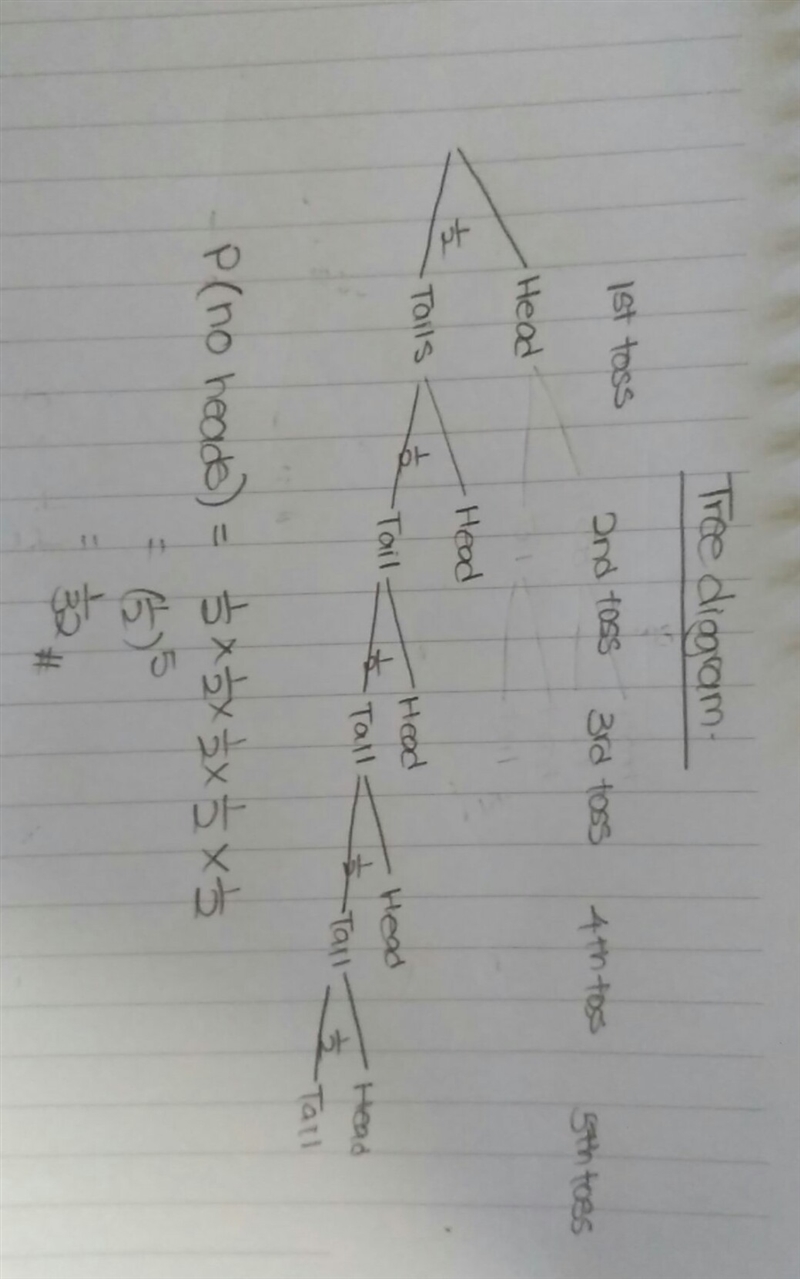 Tree diagram.
1st toss 2nd toss 3rd toss 4th toss 5th toss
Head
1/2 Tails
Head
1/2 Tail
Head
1/2 Tail
Head
1/2 Tail
Head
1/2 Tail
P(no heads) = 1/2 × 1/2 × 1/2 × 1/2 × 1/2
= (1/2)^5
= 1/32 #